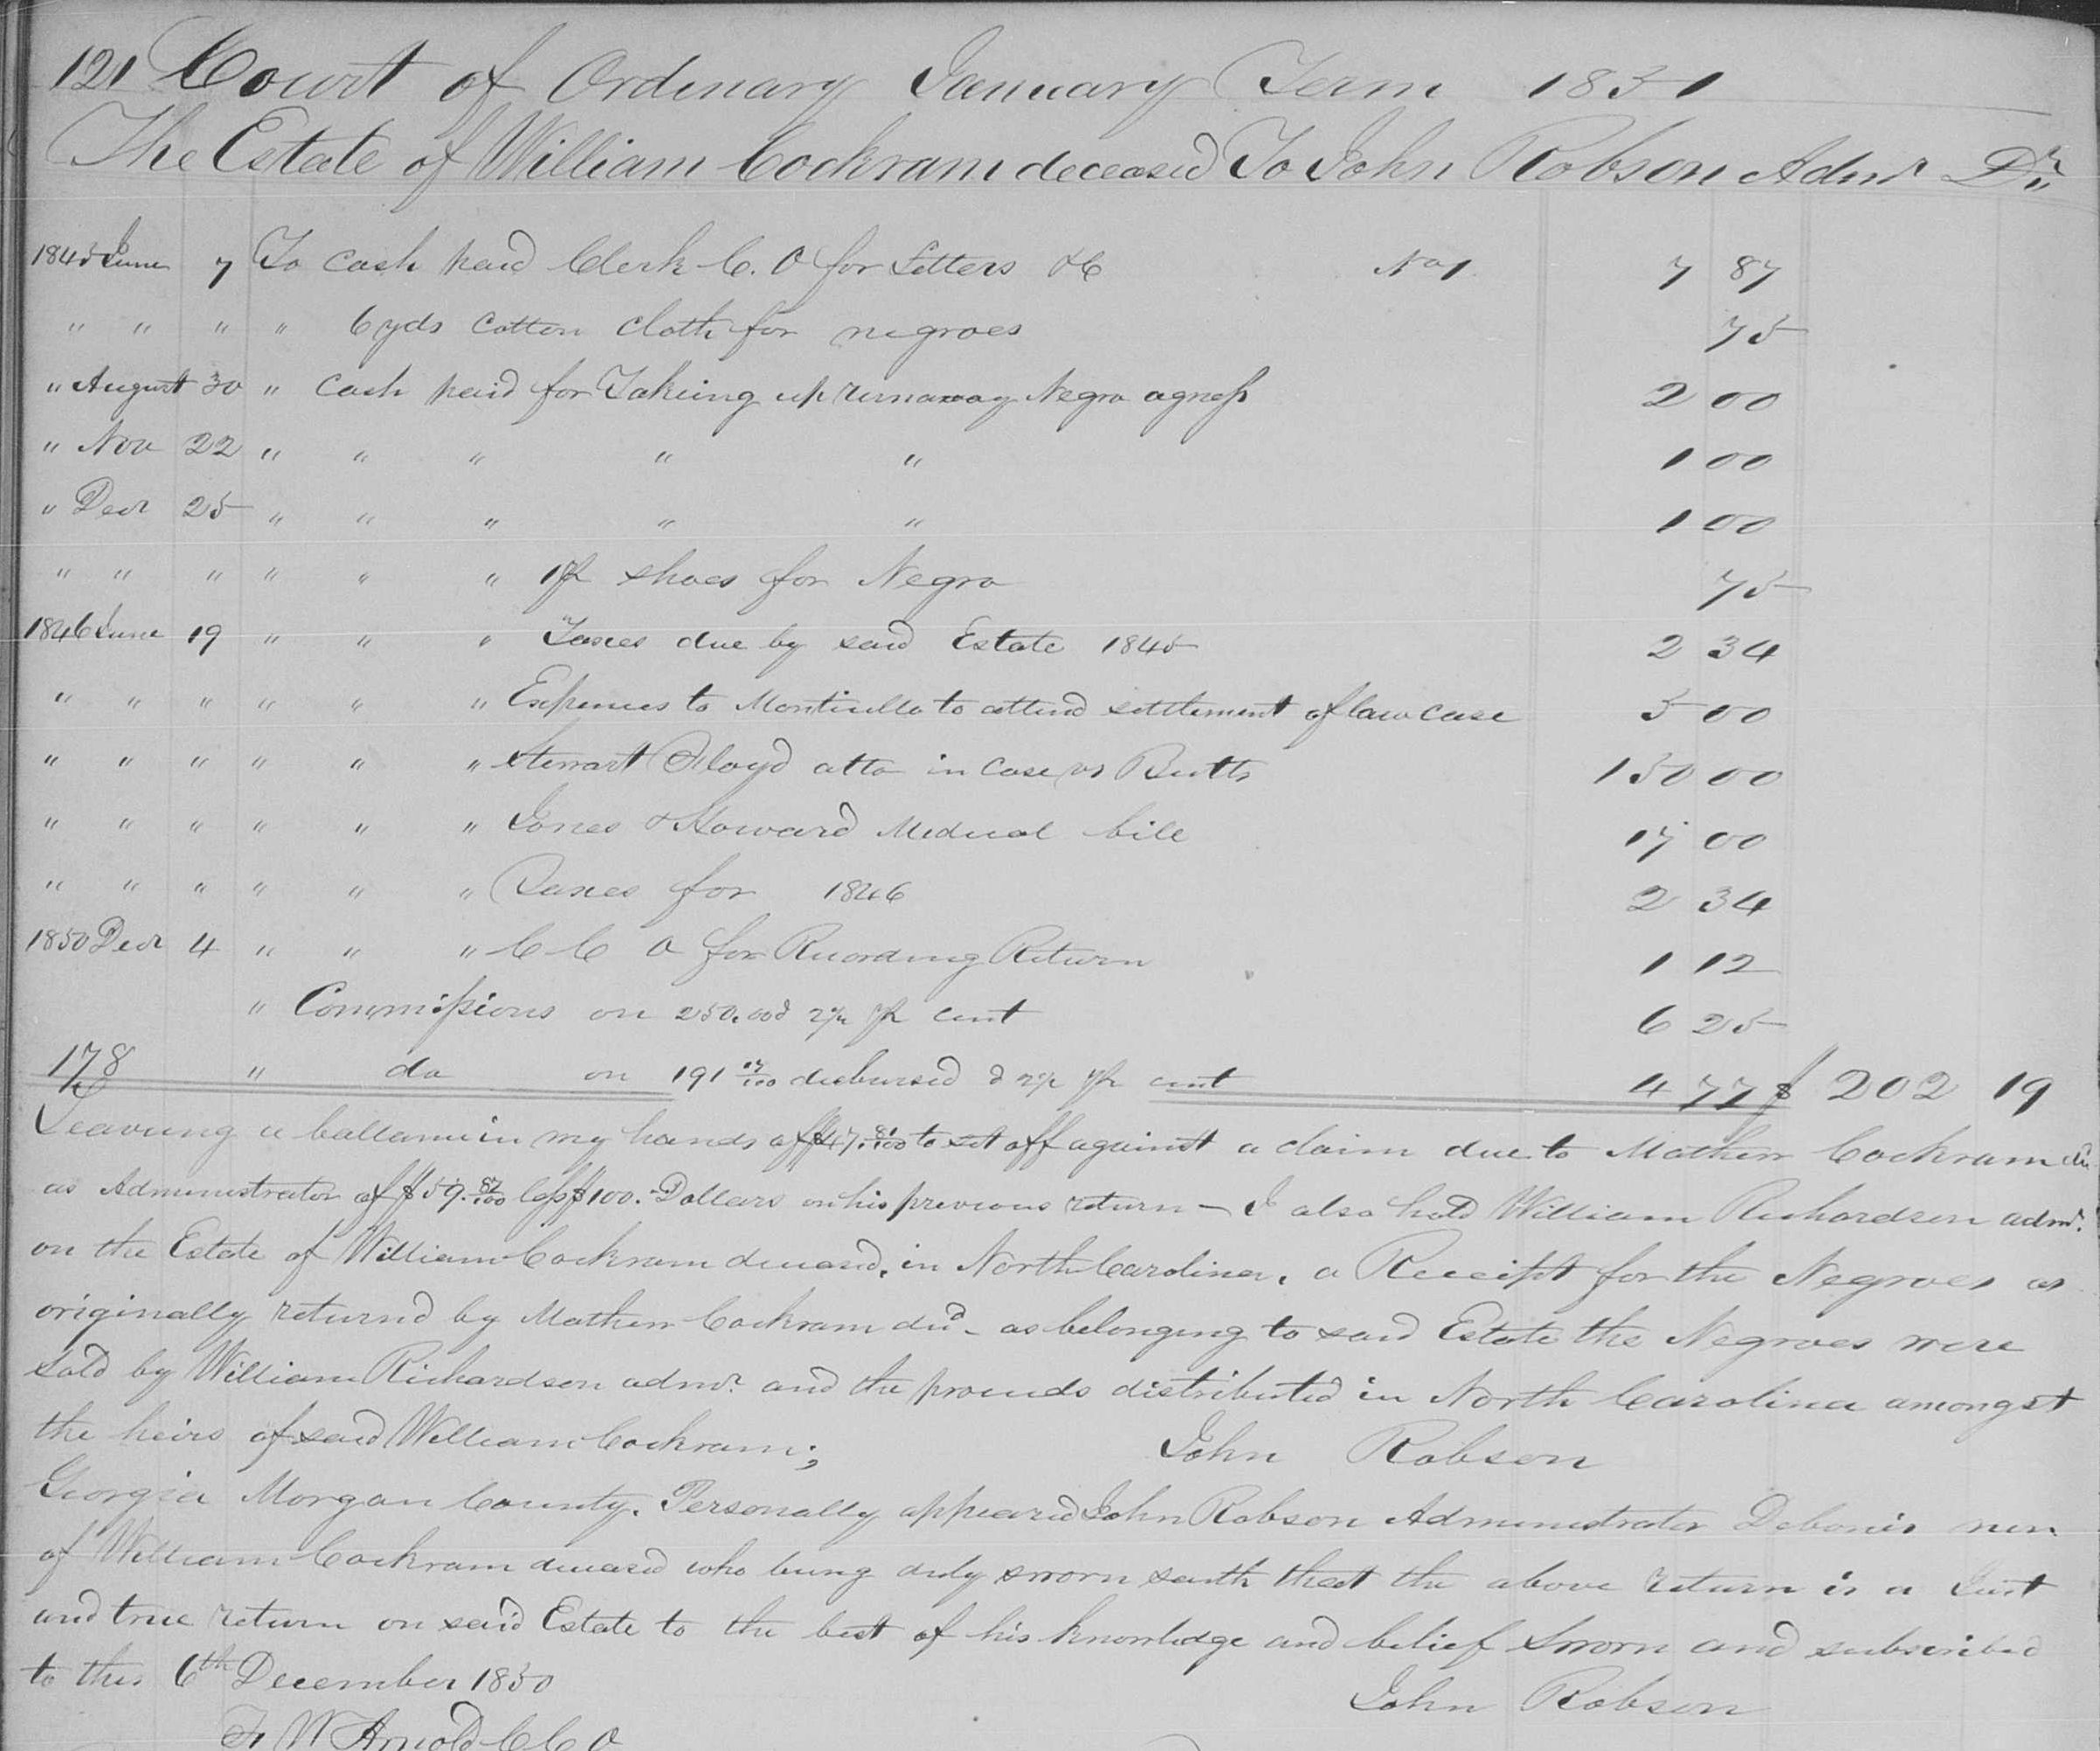 121 Court of Ordinary January Term 1851
The Estate of William Cockram deceased To John Robson Admr Dr
1845 June 7 To Cash paid Clerk C. O for Letters &C No 1 7 87
" " " " 6 yds Cotton Cloth for negroes 75
" August 30 " Cash paid for Takeing up runaway Negro agness 2 00
" Nov 22 " " " " " 1 00
" Decr 25 " " " " " 1 00
" " " " " " 1 pr shoes for Negro 75
1846 June 19 " " " Taxes due by said Estate 1845 2 34
" " " " " " Expenses to Monticello to attend settlement of law case 5 00
" " " " " " Stewart Floyd atto in case vs Butts 150 00
" " " " " " Jones & Howard Medical bill 17 00
" " " " " " Taxes for 1846 2 34
1850 Decr 4 " " " C C O for Recording Return 1 12
" Commissions on 250.00 @ 2½ pr cent 6 25
178 " do on 191 17/100 disbursed @ 2½ pr cent 4 77 $ 202 19
Leaveing a ballance in my hands of $47.81/100 to set off against a claim due to Mathew Cockram
as Administrator of $59.82/100 less $100. Dollars on his previous return - I also hold William Richardson admr.
on the Estate of William Cockram deceased, in North Carolina, a Receipt for the Negroes as
originally returnd by Mathew Cockram decd - as belonging to said Estate the Negroes were
sold by William Richardson admr. and the proceeds distributed in North Carolina amongst
the heirs of said William Cockram; John Robson
Georgia Morgan County. Personally appeared John Robson Administrator Debonis non
of William Cockram deceased who being duly sworn saith that the above return is a Just
and true return on said Estate to the best of his knowledge and belief Sworn and subscribed
to this 6th December 1850 John Robson
F. W Arnold C C O